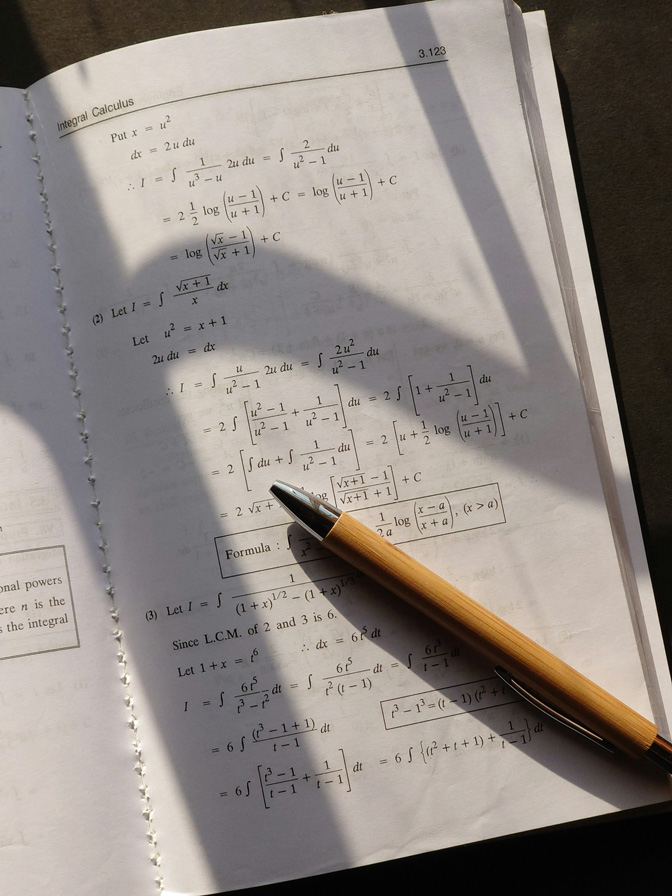 3.123
Integral Calculus
Put x = u²
dx = 2 u du
∴ I = ∫ 1/(u³ − u) 2u du = ∫ 2/(u² − 1) du
= 2 1/2 log ((u − 1)/(u + 1)) + C = log ((u − 1)/(u + 1)) + C
= log ((√x − 1)/(√x + 1)) + C
(2) Let I = ∫ √(x + 1)/x dx
Let u² = x + 1
2u du = dx
∴ I = ∫ u/(u² − 1) 2u du = ∫ 2u²/(u² − 1) du
= 2 ∫ [(u² − 1)/(u² − 1) + 1/(u² − 1)] du = 2 ∫ [1 + 1/(u² − 1)] du
= 2 [∫ du + ∫ 1/(u² − 1) du] = 2 [u + 1/2 log ((u − 1)/(u + 1))] + C
= 2 √x + log [(√(x+1) − 1)/(√(x+1) + 1)] + C
Formula : ∫ 1/2a log ((x − a)/(x + a)), (x > a)
(3) Let I = ∫ 1/((1 + x)^1/2 − (1 + x)^1/3)
Since L.C.M. of 2 and 3 is 6.
Let 1 + x = t⁶ ∴ dx = 6 t⁵ dt
I = ∫ 6t⁵/(t³ − t²) dt = ∫ 6t⁵/(t² (t − 1)) dt = ∫ 6t³/(t − 1) dt
t³ − 1³ = (t − 1) (t² + t
= 6 ∫ (t³ − 1 + 1)/(t − 1) dt
= 6 ∫ [(t³ − 1)/(t − 1) + 1/(t − 1)] dt = 6 ∫ {(t² + t + 1) + 1/(t − 1)} dt
onal powers
ere n is the
s the integral